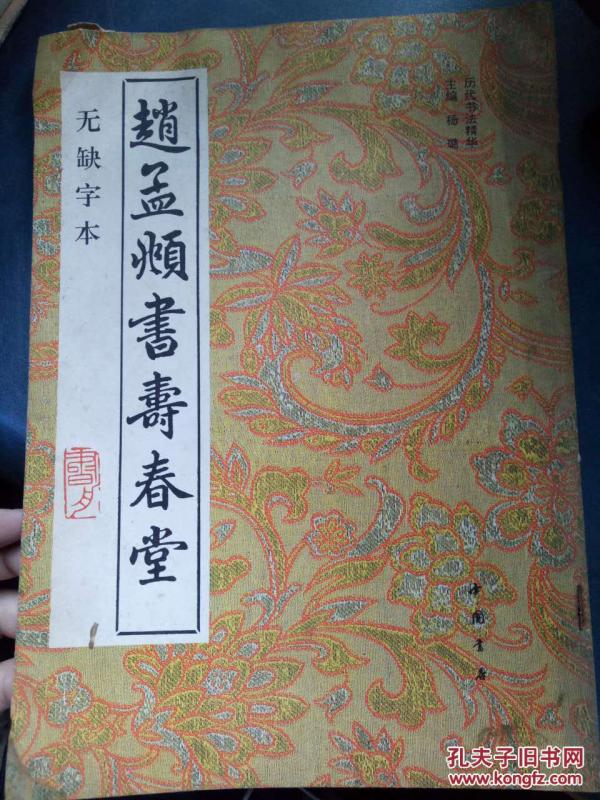 历代书法精华
主编 杨璐
趙孟頫書壽春堂
无缺字本
中國書店
孔夫子旧书网
www.kongfz.com